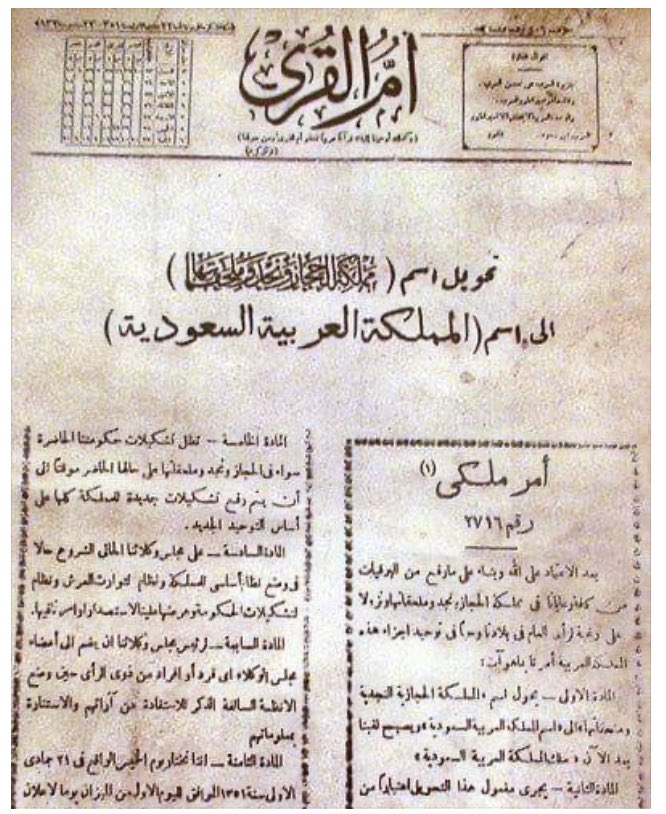 أم القرى
تحويل اسم ( مملكة الحجاز ونجد وملحقاتها )
الى اسم ( المملكة العربية السعودية )
أمر ملكي (١)
رقم ٢٧١٦
بعد الاعتماد على الله وبناء على مارفع من البرقيات
من كافة رعايانا في مملكة الحجاز ونجد وملحقاتها ونزولا
على رغبة الرأى العام في بلادنا وحبا في توحيد اجزاء هذه
المملكة العربية أمرنا بما هو آت :
المادة الاولى — يحول اسم « المملكة الحجازية النجدية
وملحقاتها » الى « اسم المملكة العربية السعودية » ويصبح لقبنا
بعد الآن « ملك المملكة العربية السعودية »
المادة الثانية — يجرى مفعول هذا التحويل اعتبارا من
المادة الخامسة — تظل تشكيلات حكومتنا الحاضرة
سواء في الحجاز ونجد وملحقاتها على حالها الحاضر موقتا الى
أن يتم وضع تشكيلات جديدة للمملكة كلها على
أساس التوحيد الجديد .
المادة السادسة — على مجلس وكلائنا الحالى الشروع حالا
فى وضع نظام أساسى للمملكة ونظام لتوارث العرش ونظام
لتشكيلات الحكومة وعرضها علينا لاستصدار اوامرنا فيها .
المادة السابعة — لرئيس مجلس وكلائنا ان يضم الى أعضاء
مجلس الوكلاء اى فرد أو افراد من ذوى الرأى حين وضع
الانظمة السالفة الذكر للاستفادة من آرائهم والاستنارة
بمعلوماتهم
المادة الثامنة — اننا نختار يوم الخميس الواقع فى ٢١ جمادى
الاولى سنة ١٣٥١ الموافق لليوم الاول من الميزان يوما لاعلان